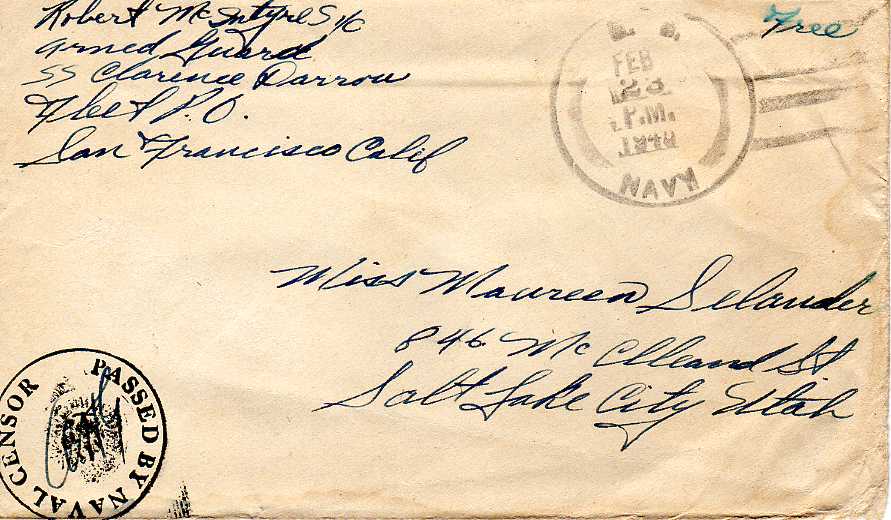 Robert McIntyre S 1/c
Armed Guard
SS Clarence Darrow
Fleet P.O.
San Francisco Calif
Free
U. S.
FEB
23
P.M.
NAVY
Miss Maureen Selander
846 McClleand St
Salt Lake City Utah
PASSED BY NAVAL CENSOR